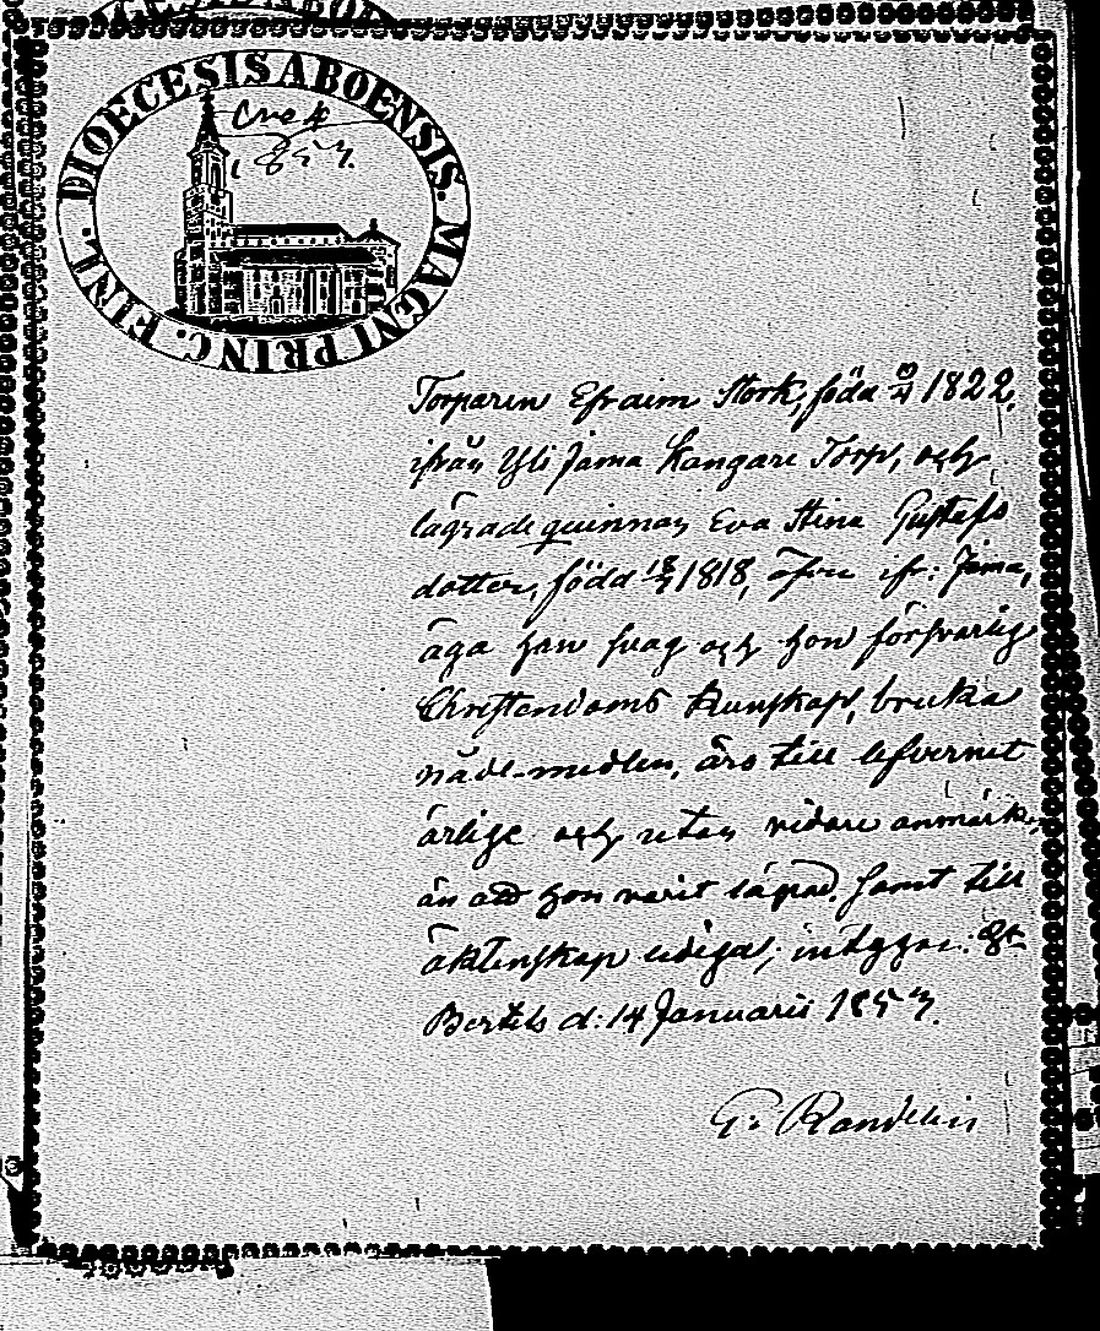 DIOECESIS ABOENSIS. MAGNI PRINC. FINL.
1853.
Torparen Efraim Stork, född 1822,
ifrån Yli Jama Kangare Torp, och
lägrade quinnan Eva Stina Gustafs
dotter, född 18/7 1818, äfven ifr: Jama,
äga han svag och hon försvarlig
Christendoms kunskap, bruka
nådemedlen, äro till lefvernet
ärlige och utan vidare anmärk:
än att hon varit lägrad. Samt till
äktenskap ledige; intygar. St
Bertils d: 14 Januarii 1853.
G: Randelin